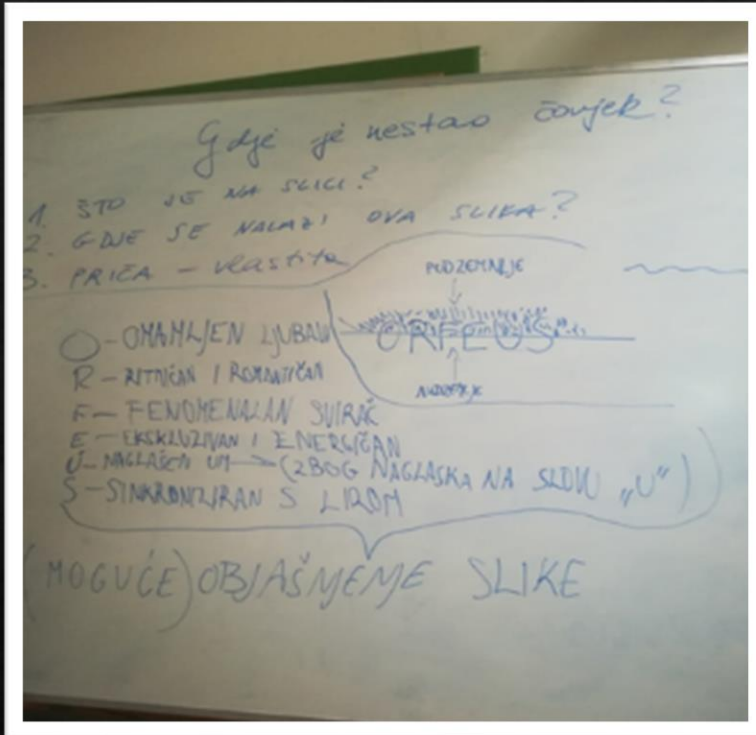 Gdje je nestao čovjek?
1. ŠTO JE NA SLICI?
2. GDJE SE NALAZI OVA SLIKA?
3. PRIČA – vlastita
PODZEMLJE
ORFEUS
O – OMAMLJEN LJUBAVI
R – RITMIČAN I ROMANTIČAN
F – FENOMENALAN SVIRAČ
E – EKSKLUZIVAN I ENERGIČAN
U – NAGLAŠEN UM → (ZBOG NAGLASKA NA SLOVU „U")
S – SINKRONIZIRAN S LIROM
(MOGUĆE) OBJAŠNJENJE SLIKE